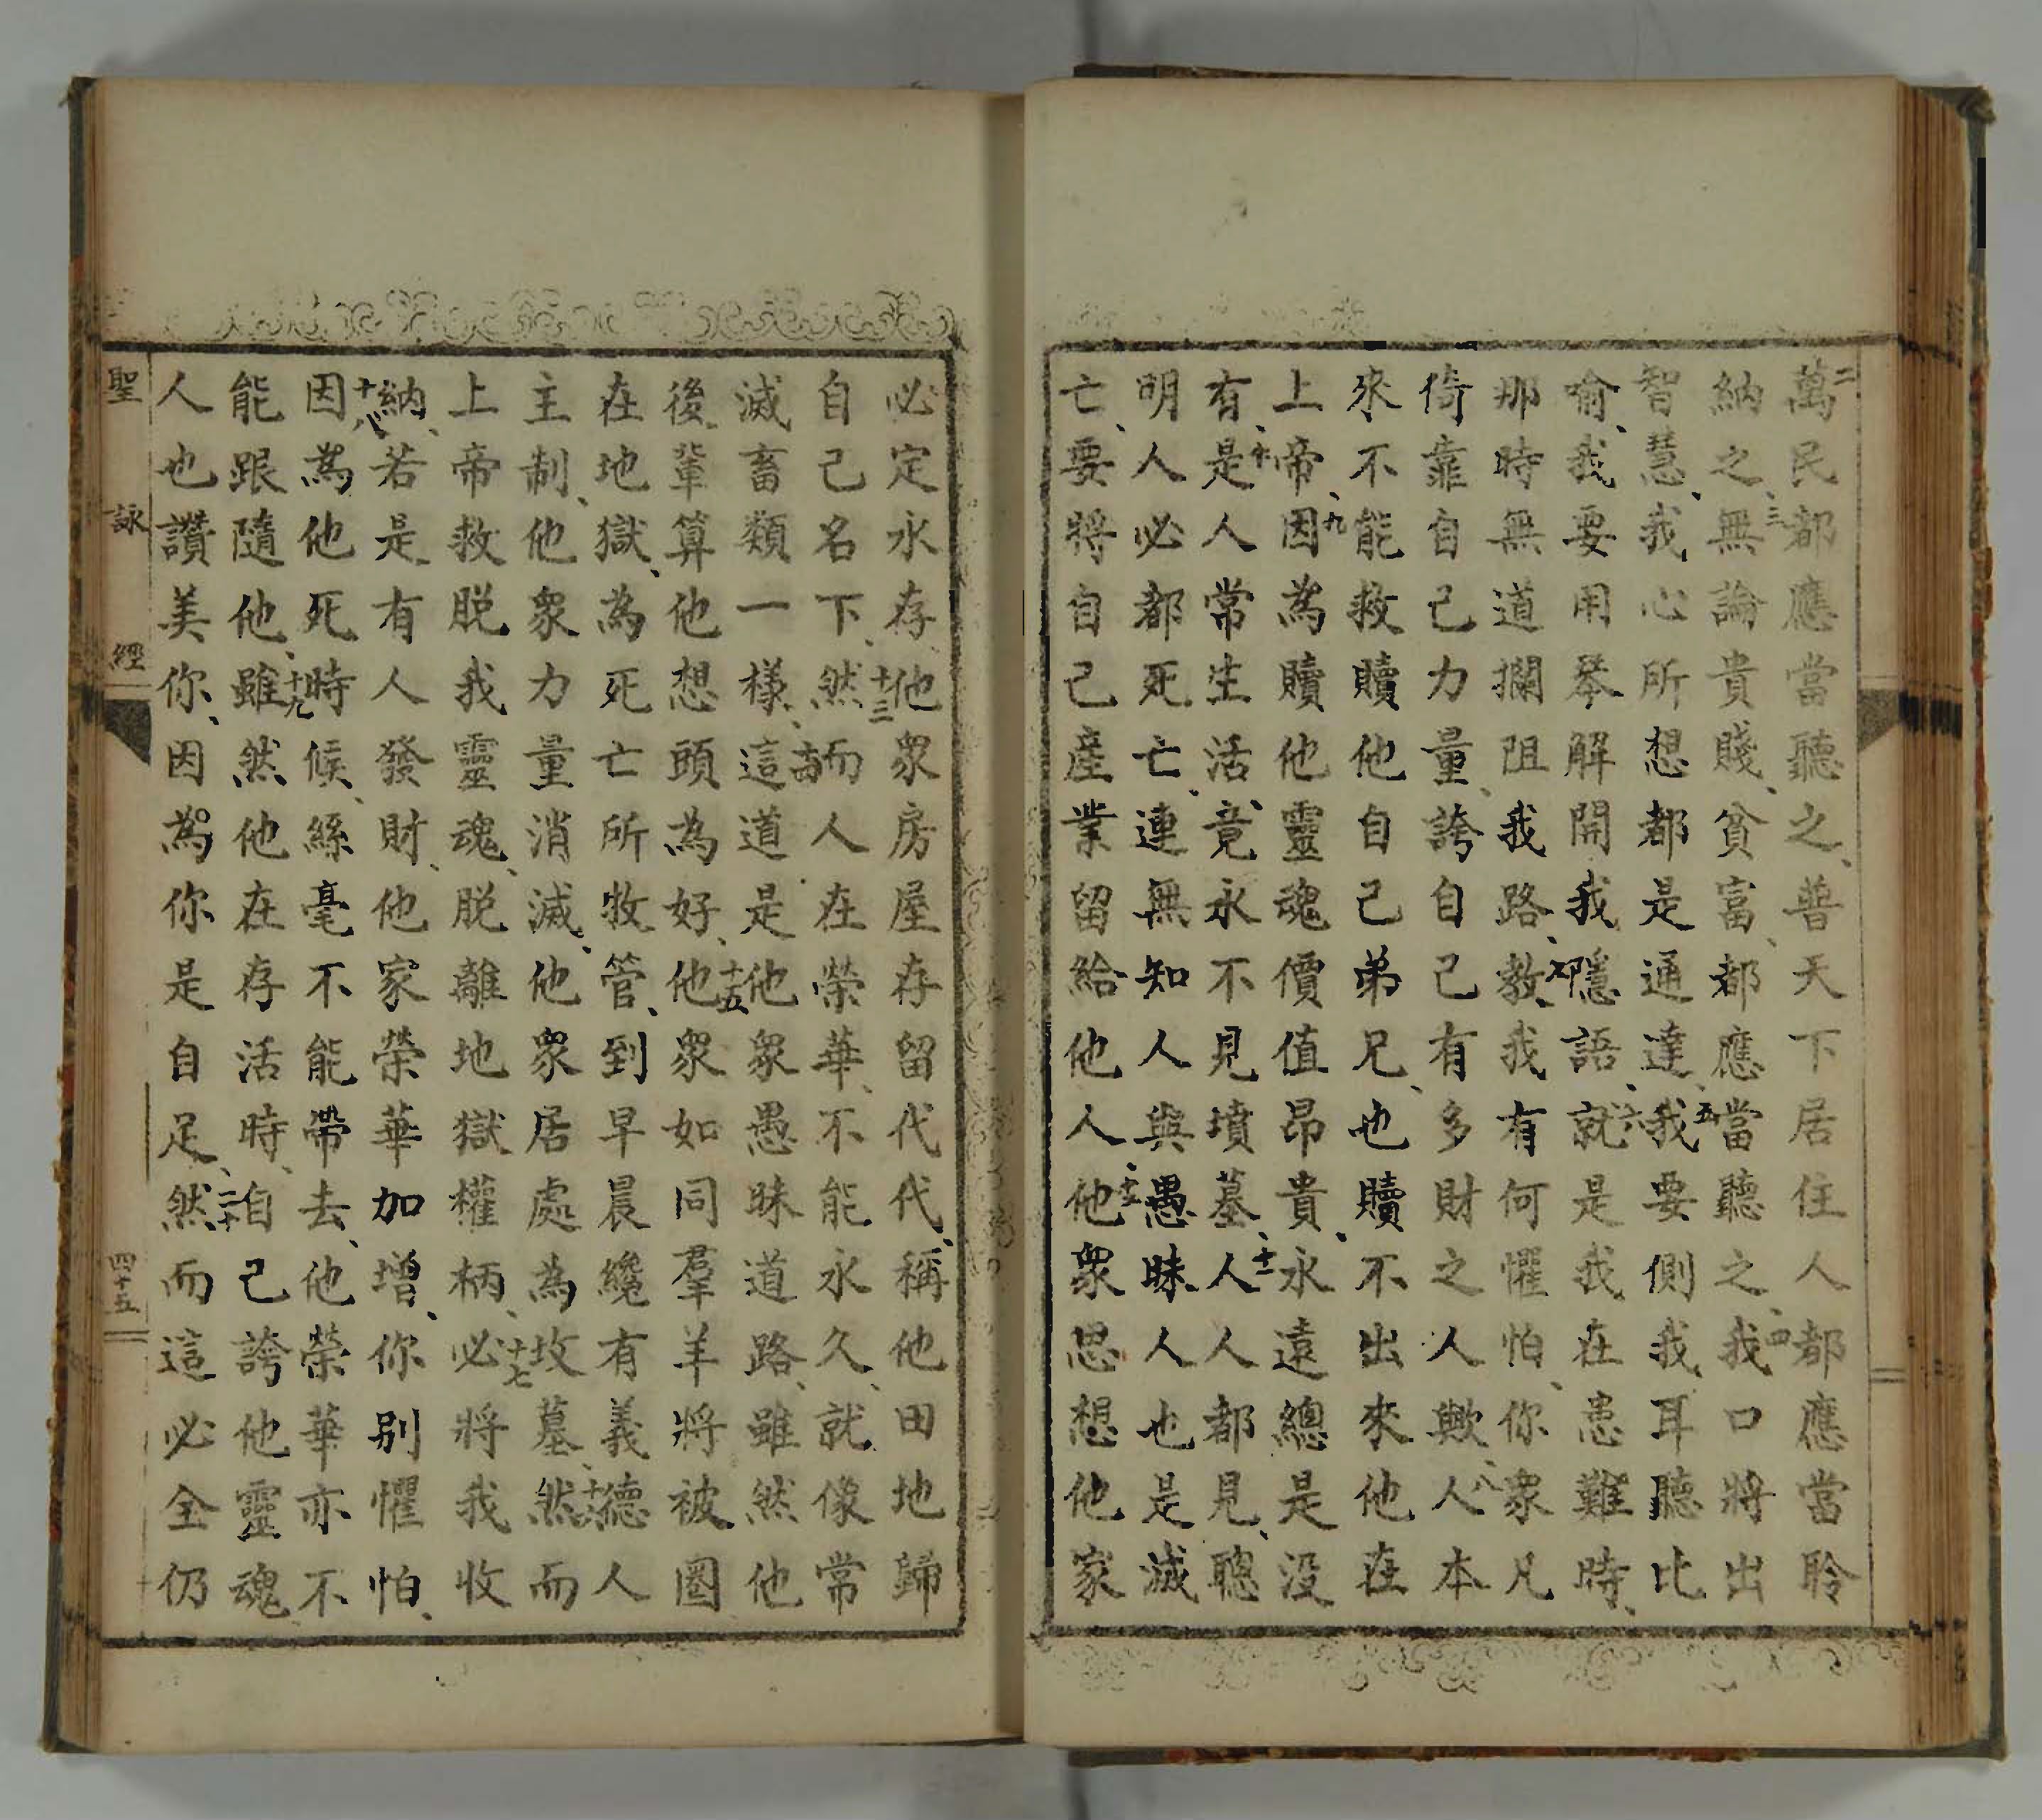 二萬民都應當聽之、普天下居住人都應當聆
納之、三無論貴賤、貧富、都應當聽之、四我口將出
智慧、我心所想都是通達、五我要側我耳聽比
喻、我要用琴解開我隱語、六就是我在患難時、
那時無道攔阻我路、教我有何懼怕、你衆凡
倚靠自己力量、誇自己有多財之人歟、八人本
來不能救贖他自己弟兄、也贖不出來他在
上帝、九因為贖他靈魂價值昂貴、永遠總是没
有、十是人常生活、竟永不見墳墓、十一人人都見、聰
明人必都死亡、連無知人與愚昧人也是滅
亡、要將自己產業留給他人、十二他衆思想他家
必定永存、他衆房屋存留代代、稱他田地歸
自己名下、十三然而人在榮華、不能永久、就像常
滅畜類一樣、十四這道是他衆愚昧道路、雖然他
後輩算他想頭為好、十五他衆如同羣羊將被圈
在地獄、為死亡所牧管、到早晨纔有義德人
主制、他衆力量消滅、他衆居處為坟墓、十六然而
上帝救脱我靈魂、脱離地獄權柄、十七必將我收
納、十八若是有人發財、他家榮華加增、你别懼怕、
因為他死時候、絲毫不能帶去、他榮華亦不
能跟隨他、十九雖然他在存活時、自己誇他靈魂、
人也讚美你、因為你是自足、二十然而這必全仍
聖詠經
四十五